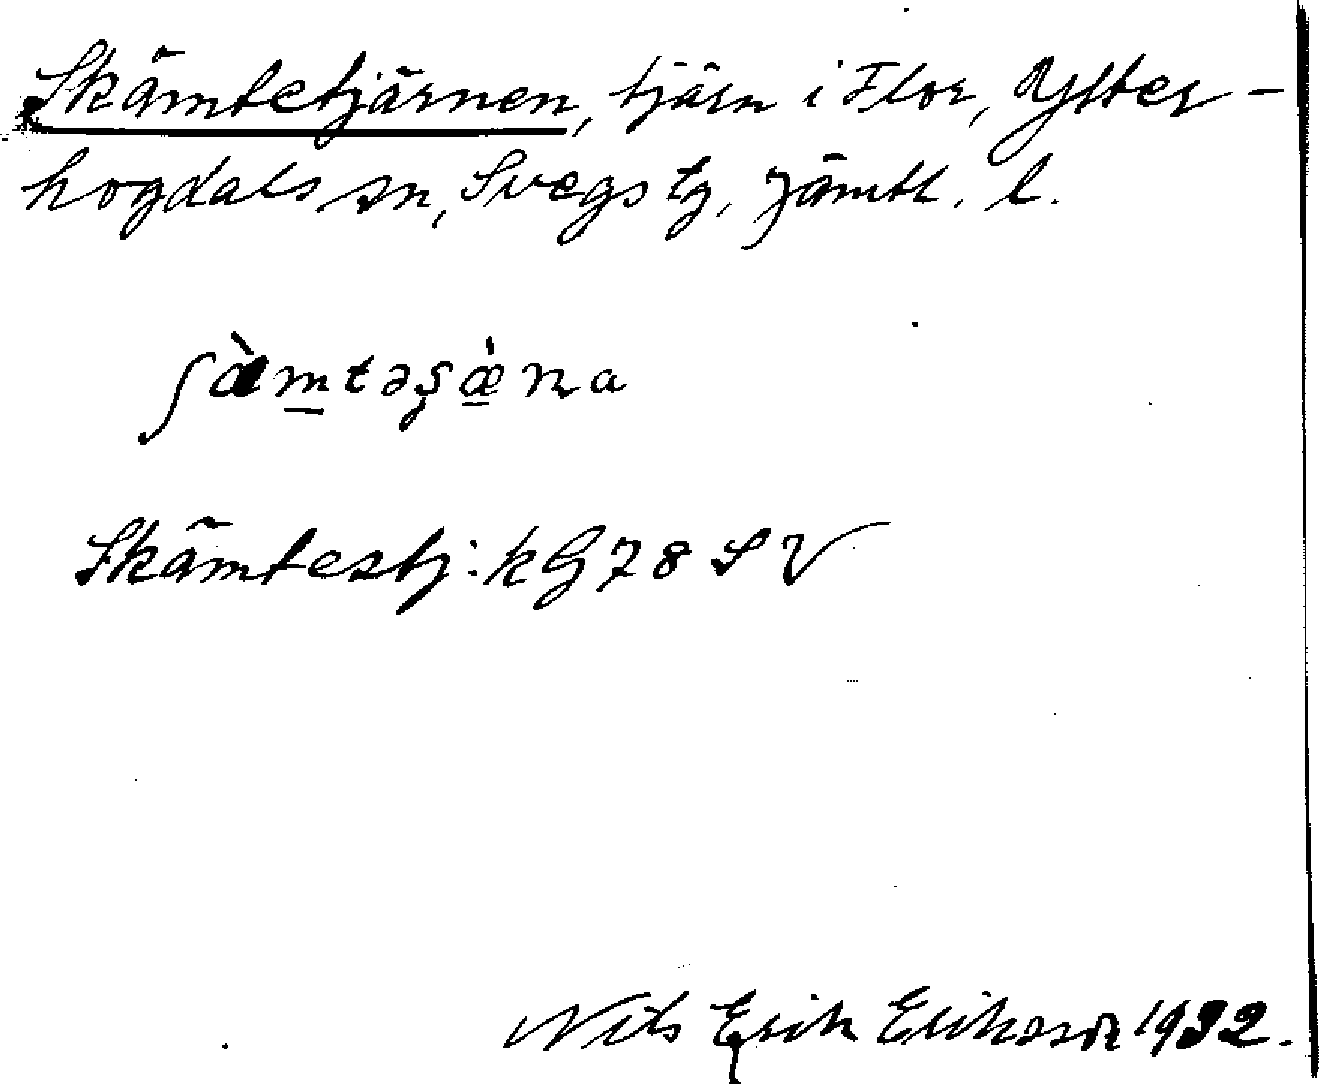 Skämtetjärnen, tjärn i Flor, Ytter-
hogdals sn, Svegs tg, Jämtl. l.
ʃæ̀m̲təʂæ̲̀na
Skämtestj: kG 78 SV
Nils Erik Erikson 1932.